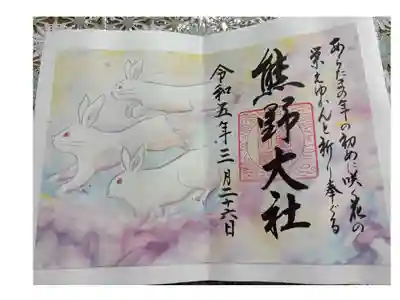 あらたまの年の初めに咲く花の
栄えゆかんと祈り奉ぐる
熊野大社
令和五年三月二十六日